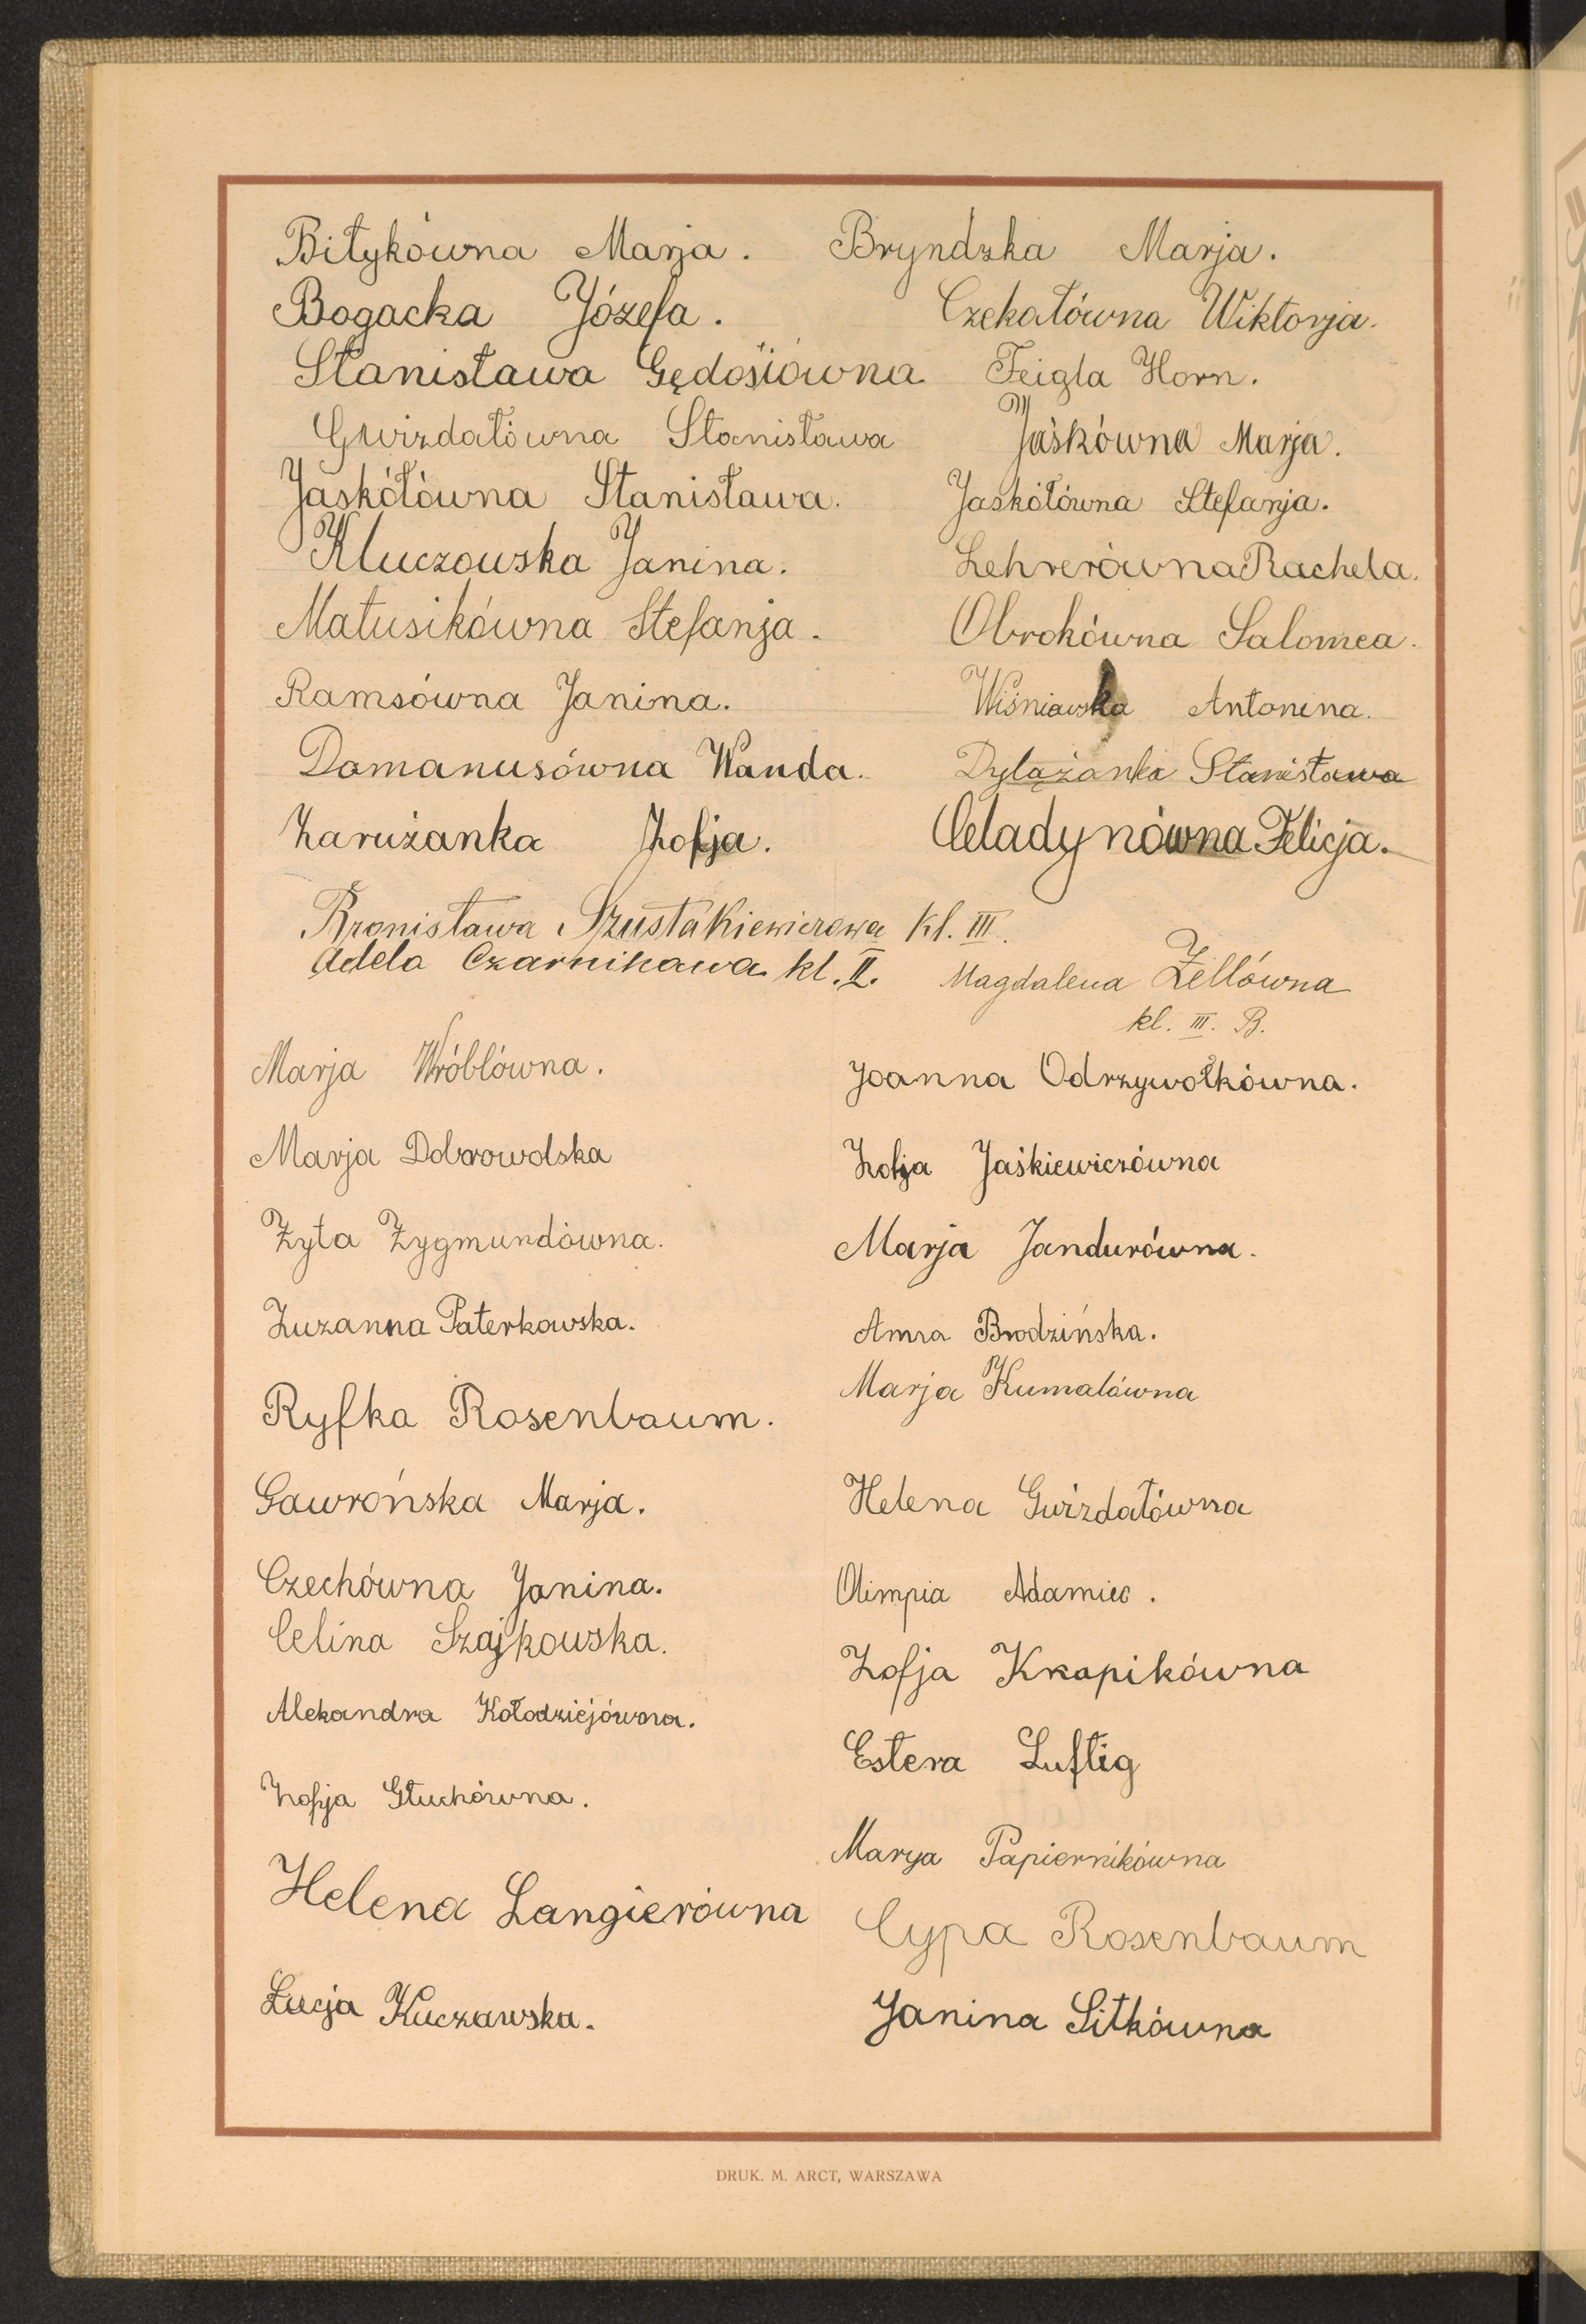 Bitykówna Marja. Bryndzka Marja.
Bogacka Józefa. Czekałówna Wiktorja.
Stanisława Gędosiówna Feigla Horn.
Gwizdałówna Stanisława Jaśkówna Marja.
Jaskółówna Stanisława. Jaskółówna Stefanja.
Kluczowska Janina. Lehrerówna Rachela.
Matusikówna Stefanja. Obrokówna Salomea.
Ramsówna Janina. Wiśniewska Antonina.
Domanusówna Wanda. Dylążanka Stanisława
Zarużanka Zofja. Celadynówna Felicja.
Bronisława Szustakiewiczowa kl. III.
Adela Czarnikowa kl. II. Magdalena Zellówna
kl. III. B.
Marja Wróblówna. Joanna Odrzywołkówna.
Marja Dobrowolska Zofja Jaśkiewiczówna
Zyta Zygmundówna. Marja Jandurówna.
Zuzanna Paterkowska. Anna Brodzińska.
Marja Kumalówna
Ryfka Rosenbaum.
Gawrońska Marja. Helena Gwizdałówna
Czechówna Janina. Olimpia Adamiec.
Celina Szajkowska. Zofja Krapikówna
Alekandra Kołodziejówna. Estera Luftig
Zofja Głuchówna. Marya Papiernikówna
Helena Langierówna Cypa Rosenbaum
Łucja Kuczawska. Janina Sitkówna
DRUK. M. ARCT, WARSZAWA